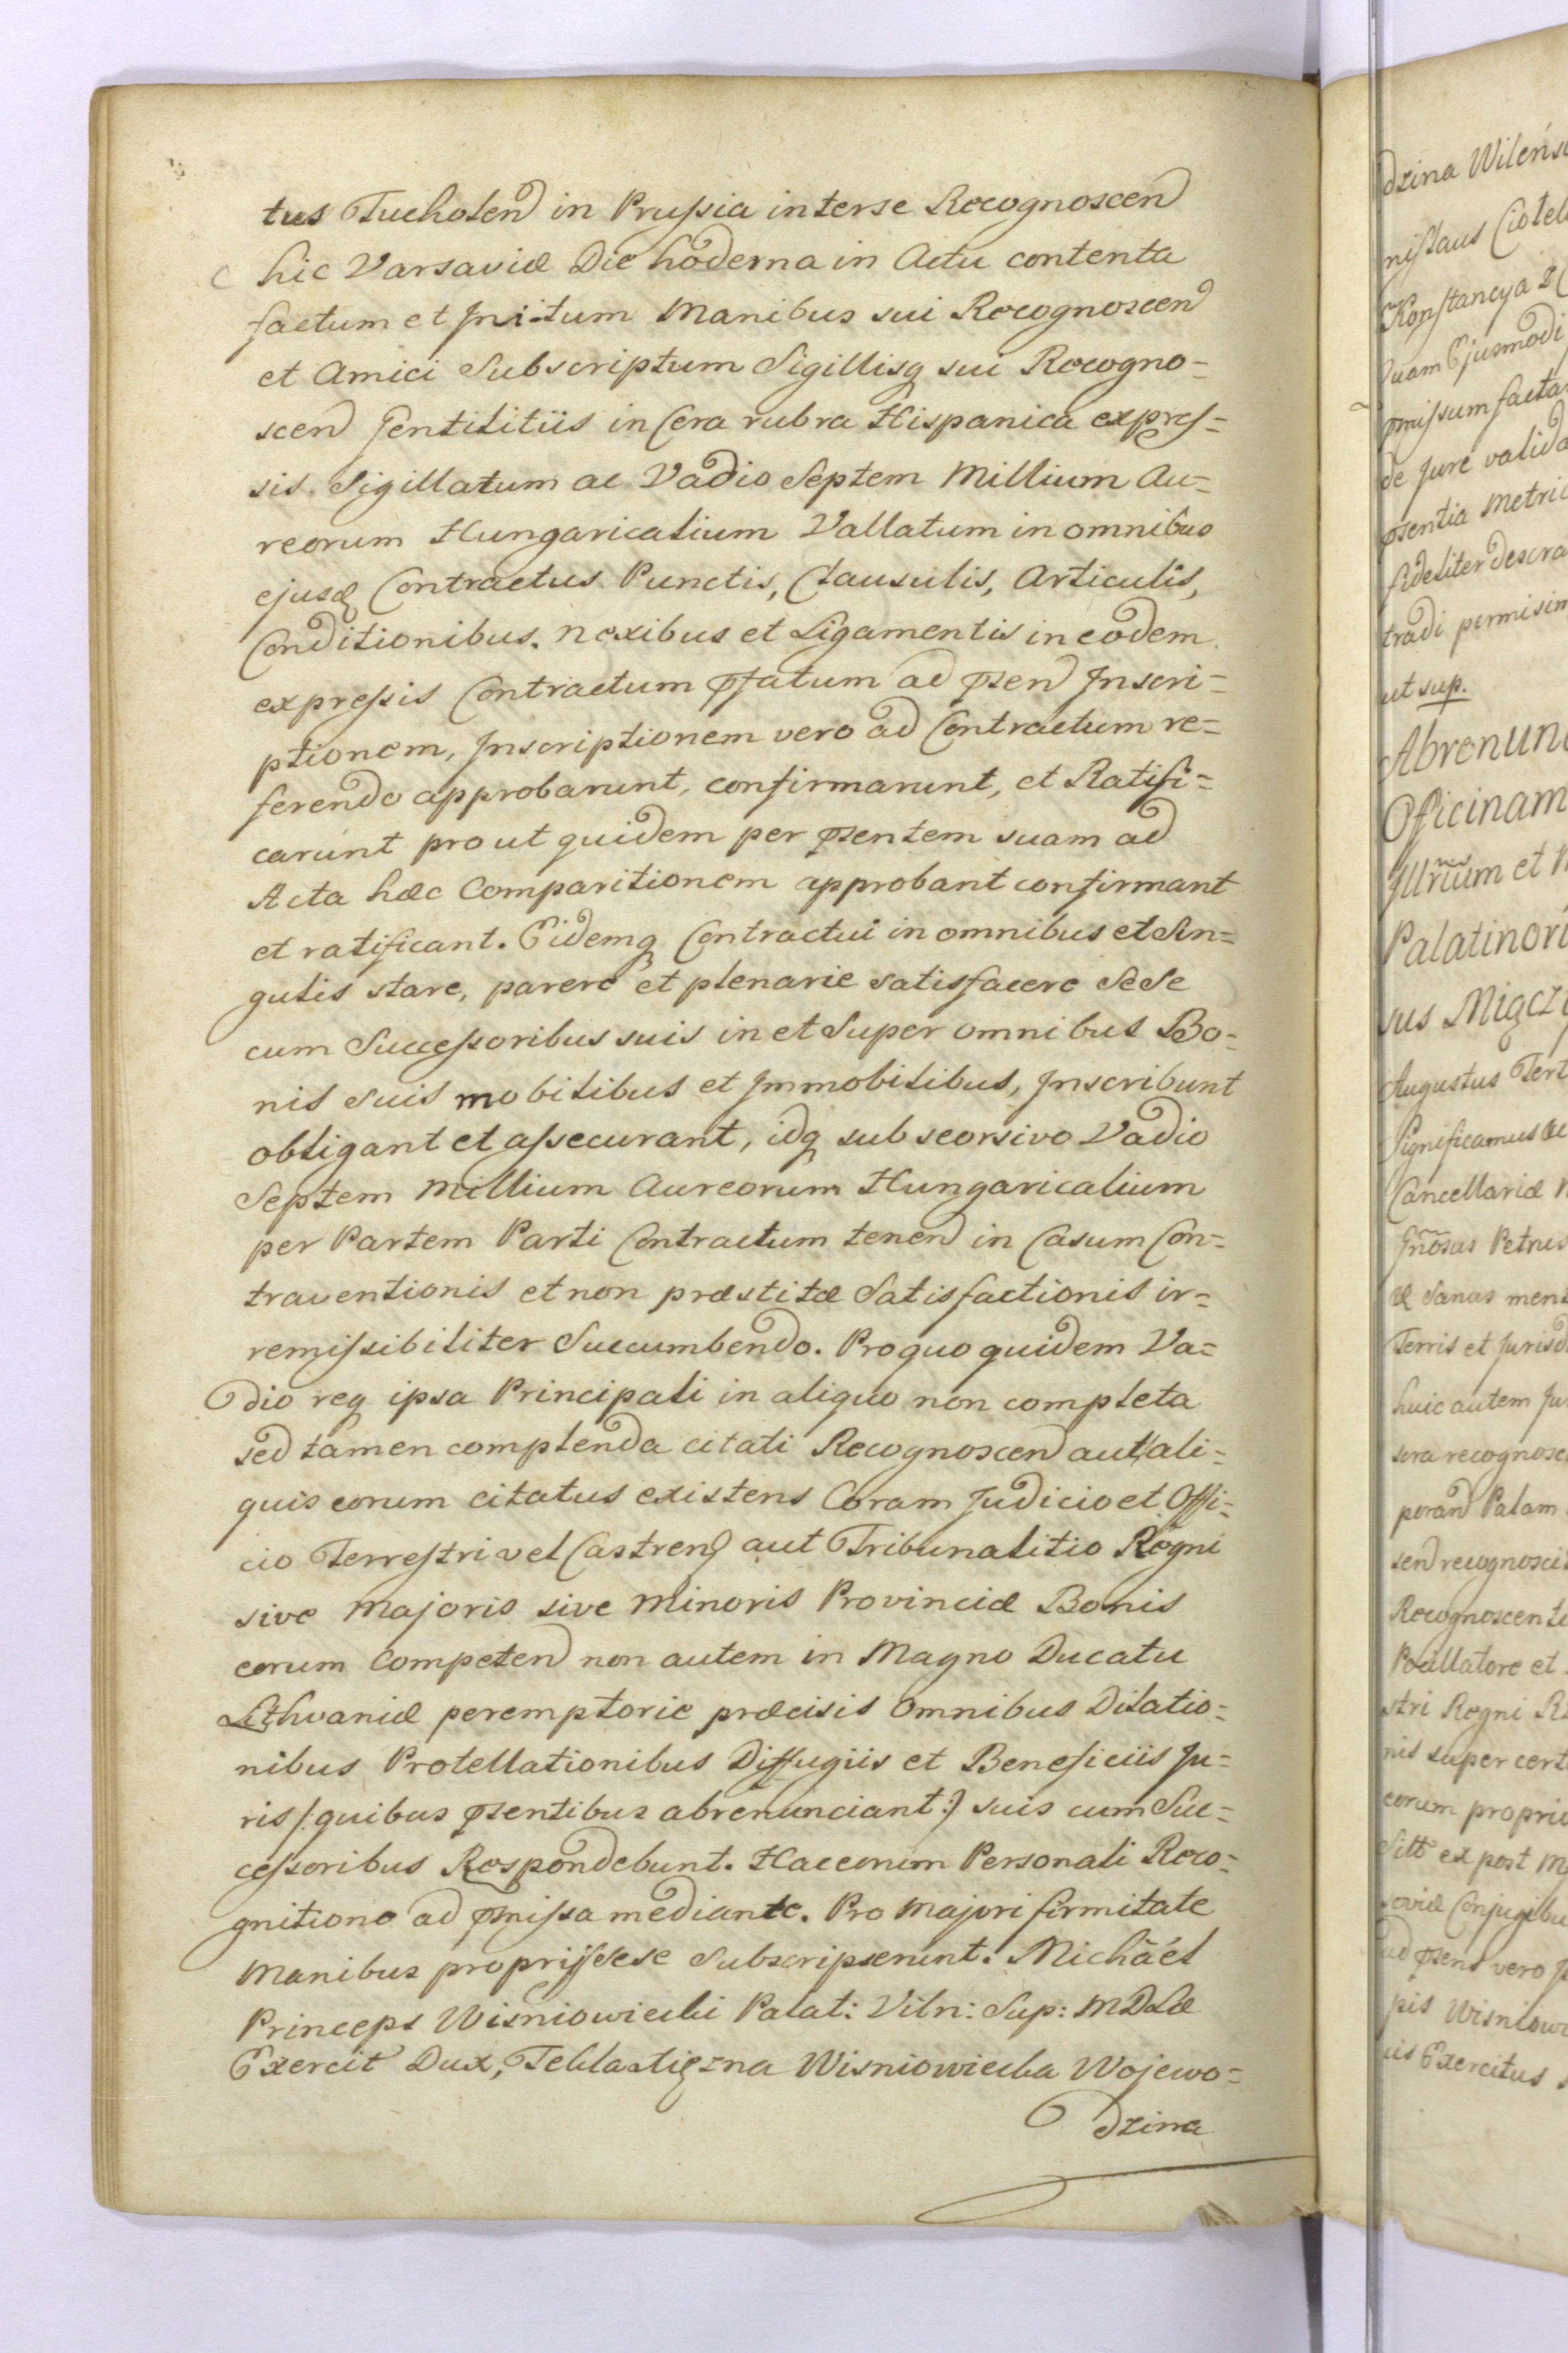 tus Tucholen in Prussia interse Recognoscen
hic Varsaviæ Die hoderna in Actu contenta
factum et Initum Manibus sui Recognoscen
et Amici Subscriptum Sigillisq sui Recogno=
scen Gentilitiis in Cera rubra Hispanica expres=
sis. Sigillatum ac Vadio Septem Millium Au=
reorum Hungaricalium Vallatum in omnibus
ejusq Contractus Punctis, Clausulis, Articulis,
Conditionibus, nexibus et Ligamentis in eodem
expressis Contractum pfatum ad psen Inscri=
ptionem, Inscriptionem vero ad Contractum re=
ferendo approbarunt, confirmarunt, et Ratifi=
carunt prout quidem per psentem suam ad
Acta hæc Comparitionem approbant confirmant
et ratificant. Eidemq Contractui in omnibus et Sin=
gulis stare, parere et plenarie satisfacere Sese
cum Successoribus suis in et Super omnibus Bo=
nis Suis mobilibus et Immobilibus, Inscribunt
obligant et assecurant, idq sub seorsivo Vadio
Septem Millium Aureorum Hungaricalium
per Partem Parti Contractum tenen in Casum Con=
traventionis et non præstitæ Satisfactionis ir=
remissibiliter Succumbendo. Pro quo quidem Va=
dio req ipsa Principali in aliquo non completa
sed tamen complenda citati Recognoscen aut ali=
quis eorum citatus existens Coram Judicio et Offi=
cio Terrestri vel Castren aut Tribunalitio Regni
sive Majoris sive Minoris Provinciæ Bonis
eorum Competen non autem in Magno Ducatu
Lithvaniæ peremptorie præcisis Omnibus Dilatio=
nibus Protellationibus Diffugiis et Beneficiis Ju=
ris /: quibus psentibus abrenunciant :/ suis cum Suc=
cessoribus Respondebunt. Hac eorum Personali Reco=
gnitione ad pmissa mediante. Pro Majori firmitate
Manibus proprijs sese Subscripserunt. Michaél
Princeps Wisniowiecki Palat: Viln: Sup: M D Læ
Exercit Dux, Tekla Xiężna Wisniowiecka Wojewo=
dzina
dzina Wileńs
nislaus Ciotel
Konstancya
quam Ejusmodi
pmissum facta
de Jure valida
psentia Metric
fideliter descra
tradi permisim
ut sup.
Abrenun
Officinam
Illrium et
Palatinor
sus Miącz
Augustus Tert
Significamus
Cancellariæ
Gnosus Petrus
Sanus men
Terris et Jurisd
huic autem Ju
sera recognosc
peran Palam
sen recognosci
Recognoscent
Pocillatore et
stri Regni
nis super cert
eorum propri
ex post M
soviæ Conjugibu
ad psens vero
pis Wisniow
is Exercitus